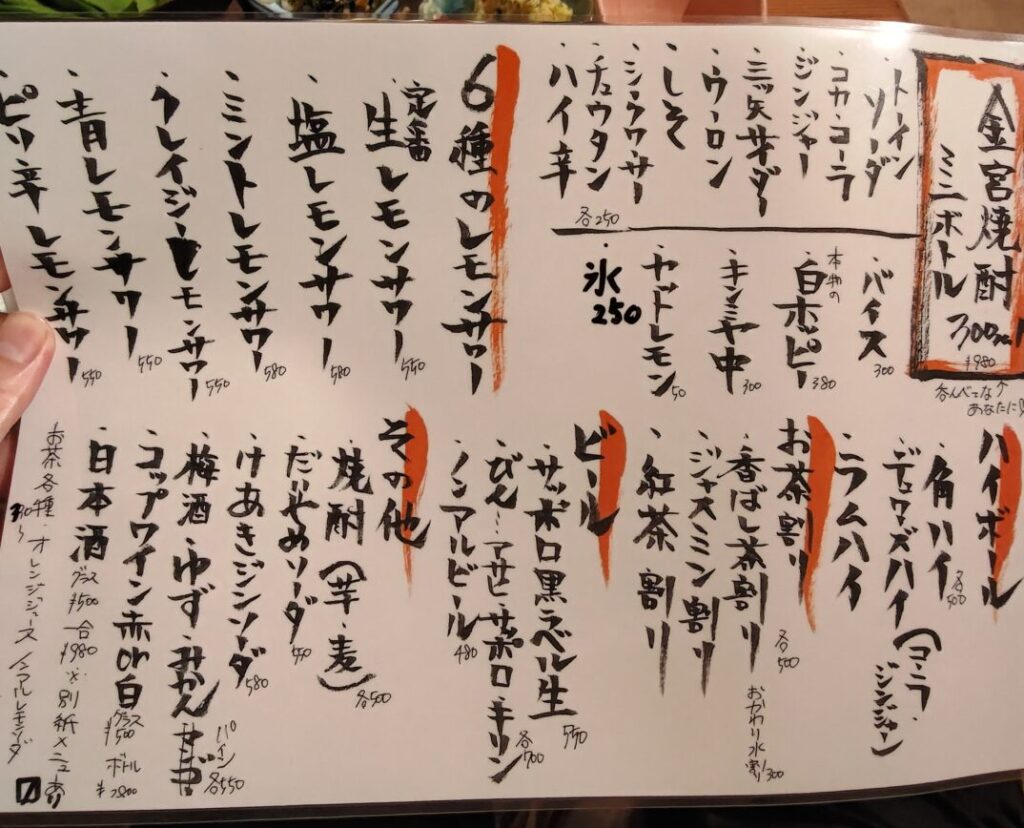 金宮焼酎
ミニボトル
300ml
¥980
呑んべてな
あなたに!
・トーイン
ソーダ
・コカ・コーラ
・ジンジャー
・三ッ矢サイダー
・ウーロン
・しそ
・シークワーサー
・チュウタン
・ハイ辛
各250
・バイス 300
本物の
・白ホッピー 380
・キンミヤ中 300
・ヤットレモン 50
・氷 250
6種のレモンサワー
定番
・生レモンサワー 550
・塩レモンサワー 580
・ミントレモンサワー 580
・クレイジーレモンサワー 550
・青レモンサワー 550
・ピリ辛レモンサワー 550
ハイボール
・角ハイ 各500
・デュワーズハイ
(コーラ・
ジンジャー)
・ラムハイ
お茶割り
・香ばし茶割り 各500
・ジャスミン割り
・紅茶割り
おかわり水割り 300
ビール
・サッポロ黒ラベル生 550
・びん…アサヒ・サッポロ・キリン 各700
・ノンアルビール 480
その他
・焼酎(芋・麦) 各500
・だいやめソーダ 550
・けあきジンソーダ 580
・梅酒・ゆず・みかん
パイン 各550
・コップワイン赤or白
グラス ¥500 ボトル ¥2800
・日本酒
グラス ¥500 一合 ¥980 ※別紙メニューあり
お茶各種・オレンジジュース
ノンアルレモンサイダー